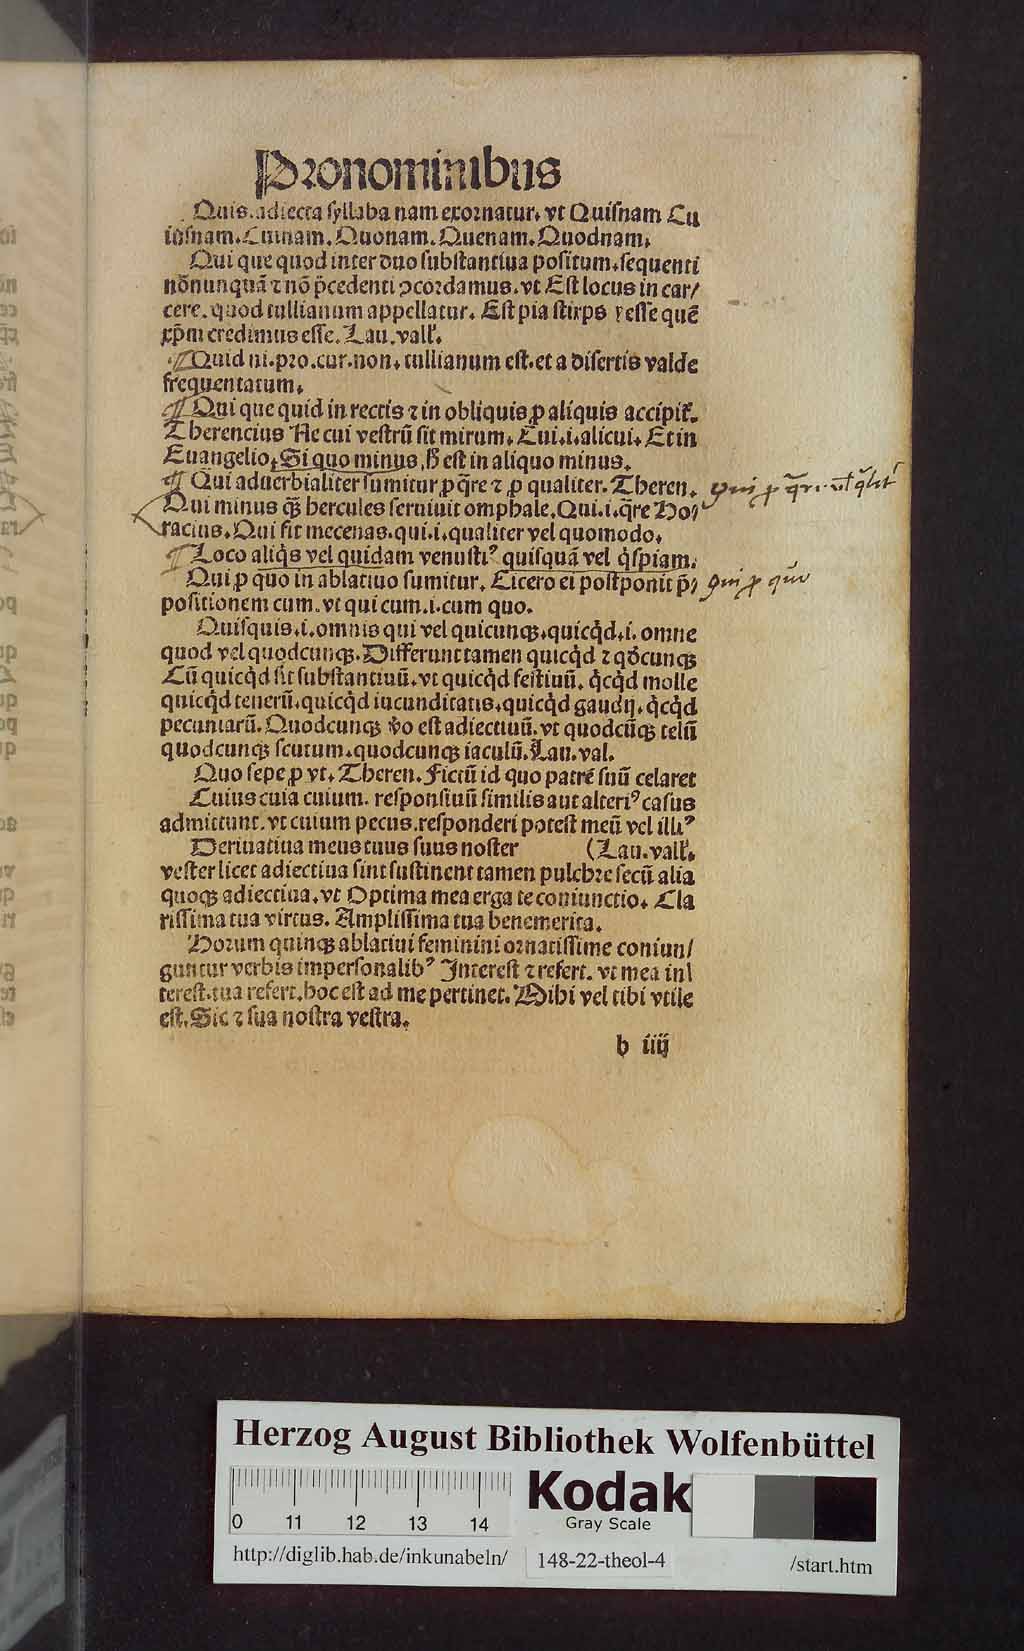 Pronominibus
Quis. adiecta syllaba nam exornatur. vt Quisnam Cu
iꝰsnam. Cuinam. Quonam. Quenam. Quodnam.
Qui que quod inter duo substantiua positum. sequenti
nōnunquā ⁊ nō p̄cedenti ꝯcordamus. vt Est locus in car/
cere. quod tullianum appellatur. Est pia stirps iesse quē
xp̄m credimus esse. Lau. vall̓.
¶ Quid ni. pro. cur. non. tullianum est. et a disertis valde
frequentatum.
¶ Qui que quid in rectis ⁊ in obliquis ꝓ aliquis accipit̉.
Therencius Ne cui vestrū sit mirum. Cui. i. alicui. Et in
Euangelio. Si quo minus. hͦ est in aliquo minus.
¶ Qui aduerbialiter sumitur ꝓ q̄re ⁊ ꝓ qualiter. Theren.
Qui minus qꝫ̄ hercules seruiuit omphale. Qui. i. q̄re Ho/
racius. Qui fit mecenas. qui. i. qualiter vel quomodo.
¶ Loco aliq̇s vel quidam venustiꝰ quisquā vel q̇spiam.
Qui ꝓ quo in ablatiuo sumitur. Cicero ei postponit p̄/
positionem cum. vt qui cum. i. cum quo.
Quisquis. i. omnis qui vel quicunqꝫ. quicq̇d. i. omne
quod vel quodcunqꝫ. Differunt tamen quicq̇d ⁊ qḋcunqꝫ
Cū quicq̇d sit substantiuū. vt quicq̇d festiuū. q̇cq̇d molle
quicq̇d tenerū. quicq̇d iucunditatis. quicq̇d gaudij. q̇cq̇d
pecuniarū. Quodcunqꝫ v̊o est adiectiuū. vt quodcūqꝫ telū
quodcunqꝫ scutum. quodcunqꝫ iaculū. Lau. val.
Quo sepe ꝓ vt. Theren. Fictū id quo patrē suū celaret
Cuius cuia cuium. responsiuū similis aut alteriꝰ casus
admittunt. vt cuium pecus. responderi potest meū vel illiꝰ
Deriuatiua meus tuus suus noster (Lau. vall̓.
vester licet adiectiua sint sustinent tamen pulchre secū alia
quoqꝫ adiectiua. vt Optima mea erga te coniunctio. Cla
rissima tua virtus. Amplissima tua benemerita.
Horum quinqꝫ ablatiui feminini ornatissime coniun/
guntur verbis impersonalibꝰ Interest ⁊ refert. vt mea in/
terest. tua refert. hoc est ad me pertinet. Mihi vel tibi vtile
est. Sic ⁊ sua nostra vestra.
b iiij
Qui ꝓ q̄re vl̓ q̄lit̓
Qui ꝓ quo
Herzog August Bibliothek Wolfenbüttel
0 11 12 13 14
Kodak
Gray Scale
http://diglib.hab.de/inkunabeln/ 148-22-theol-4 /start.htm